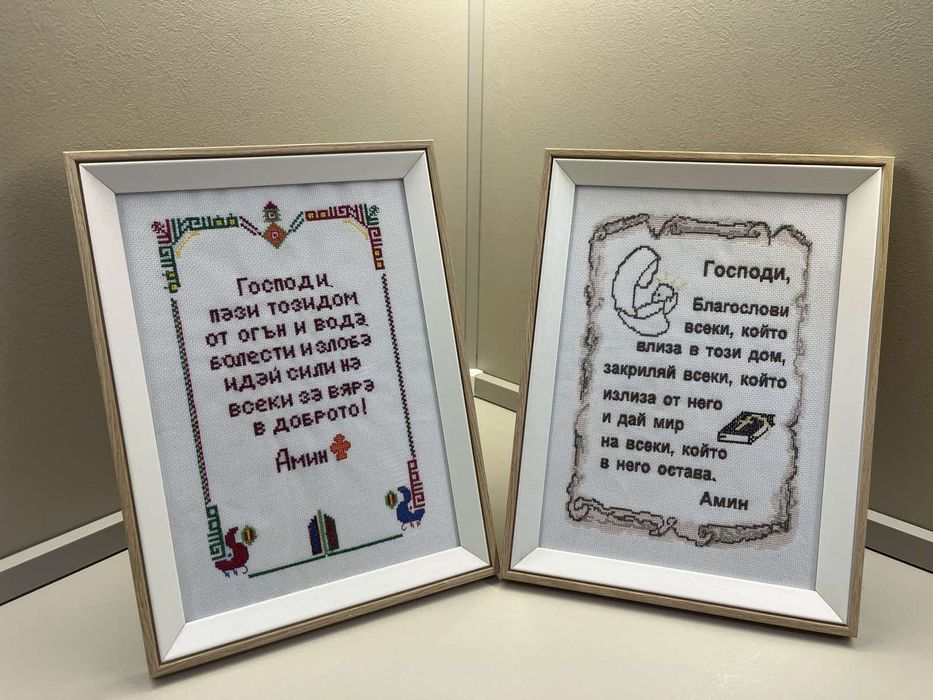 Господи,
пази този дом
от огън и вода
болести и злоба
и дай сили на
всеки за вяра
в доброто!
Амин
Господи,
Благослови
всеки, който
влиза в този дом,
закриляй всеки, който
излиза от него
и дай мир
на всеки, който
в него остава.
Амин